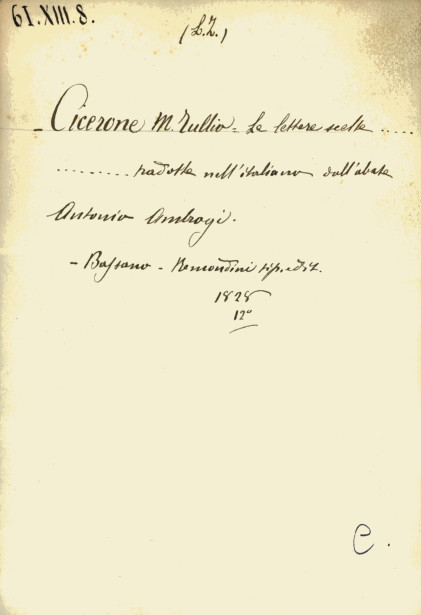 61.XIII.8.
(L.Z.)
- Cicerone M. Tullio = Le lettere scelte .....
......... tradotte nell'italiano dall'abate
Antonio Ambrogi.
- Bassano - Remondini tip. edit.
1828
12º
C.